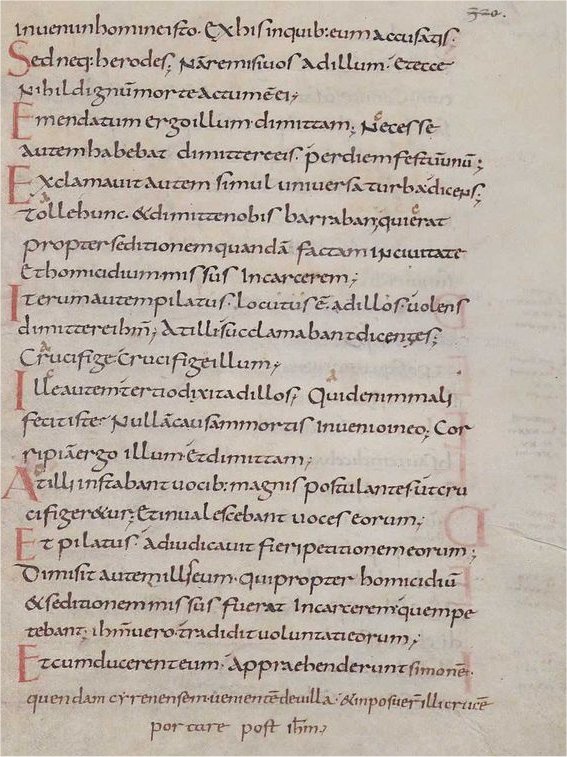 320.
inueni in homine isto. Ex his in quib: eum accusatis.
Sed neq: herodes; Nā remisi uos ad illum. Et ecce
Nihil dignū morte actum ē ei;
Emendatum ergo illum dimittam; Necesse
autem habebat dimittere eis. per diem festū unū;
Exclamauit autem simul uniuersa turba dicens;
Tolle hunc. & dimitte nobis barraban; qui erat
propter seditionem quandā factam in ciuitate
et homicidium missus in carcerem;
Iterum autem pilatus locutus ē. ad illos uolens
dimittere ihm̄; At illi succlamabant dicentes;
Crucifige. Crucifige illum;
Ille autem tertio dixit ad illos; Quid enim mali
fecit iste. Nullā causam mortis inuenio in eo; Cor
ripiā ergo illum. et dimittam;
At illi instabant uocib: magnis postulantes ut cru
cifiger&ur; Et inualescebant uoces eorum;
Et pilatus adiudicauit fieri petitionem eorum;
Dimisit autem illis eum. qui propter homicidiū
& seditionem missus fuerat in carcerem. quem pe
tebant; ihm̄ uero tradidit uoluntati eorum;
Et cum ducerent eum. Appraehenderunt simonē
quendam cyrenensem. uenientē de uilla. & inposuer̄ illi crucē
portare post ihm̄;